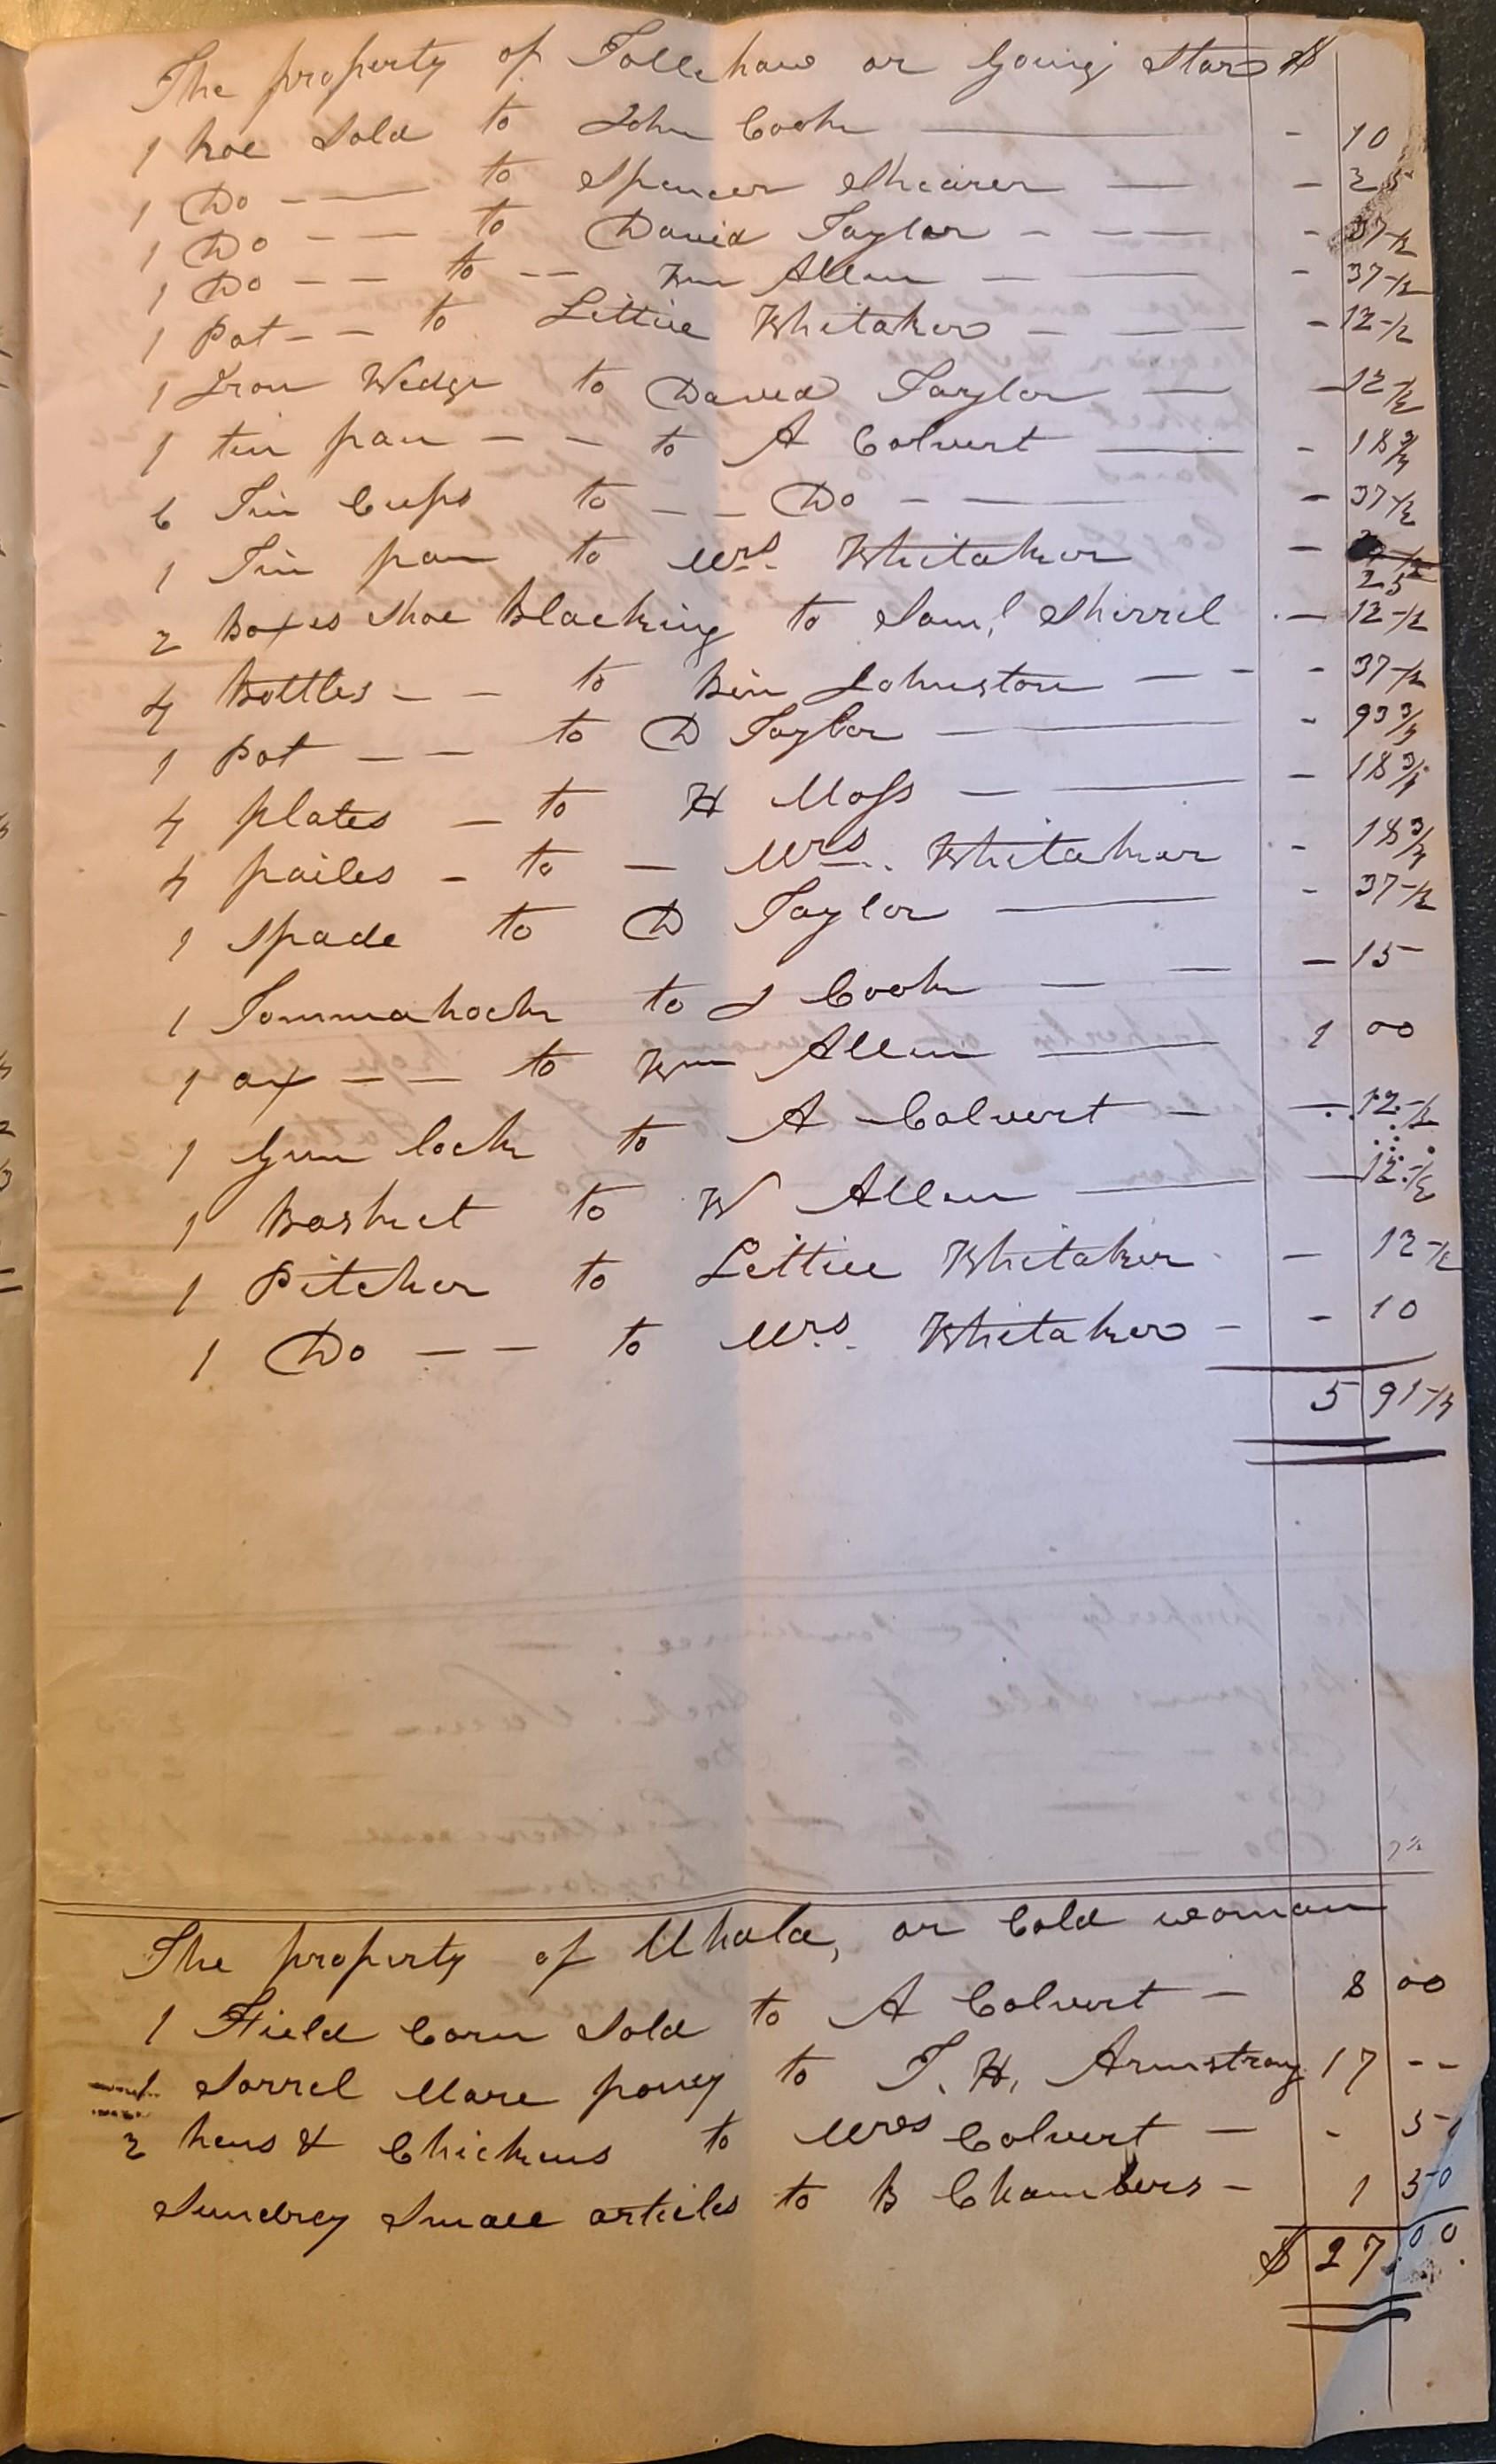 The property of Tollehaw or Going Star $
1 hoe Sold to John Cook — - 10
1 Do - — to Spencer Shearer — - 25
1 Do - - — to David Taylor - - — - 37-1/2
1 Do - - — to - - Wm Allen — - 37-1/2
1 Pot - - to Lettice Whitaker - — - 12-1/2
1 Iron Wedge to David Taylor — - 12-1/2
1 tin pan - - to A Colvert — - 18 3/4
6 Tin Cups to - - Do - — - 37-1/2
1 Tin pan to Mrs. Whitaker - 25
2 Boxes Shoe Blacking to Saml Sherrel - 12-1/2
4 Bottles - - to Ben Johnston — - - 37-1/2
1 Pot - - to D Taylor — - 93 3/4
4 plates - to H Moss - — - 18 3/4
4 pailes - to - Mrs. Whitaker - 18 3/4
1 Spade to D Taylor — - 37-1/2
1 Tommahock to J Cook — — - 15
1 ax - - to Wm Allen — 1 00
1 Gun lock to A Colvert - — 12-1/2
1 Basket to W Allen — — 12-1/2
1 Pitcher to Lettice Whitaker - 12-1/2
1 Do - - to Mrs. Whitaker - - 10
5 91-1/4
The property of Uhala, or Cold woman
1 Field Corn Sold to A Colvert - 8 00
1 Sorrel Mare poney to T. H. Armstrong 17 --
2 hens & Chickens to Mrs Colvert - - 5
Sundrey Small articles to B Chambers - 1 50
$ 27.00